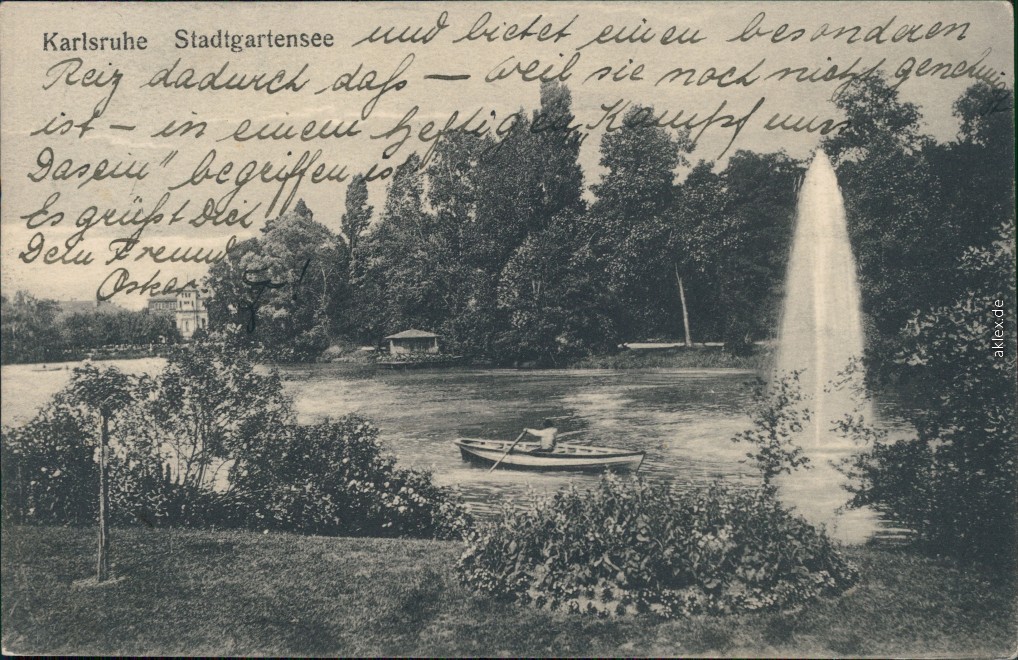 Karlsruhe Stadtgartensee und bietet einen besonderen
Reiz dadurch daß — weil sie noch nicht genehm
ist — in einem heftigen Kampf um's
Dasein" begriffen ist
Es grüßt Dich
Dein Freund
Oskar
aklex.de